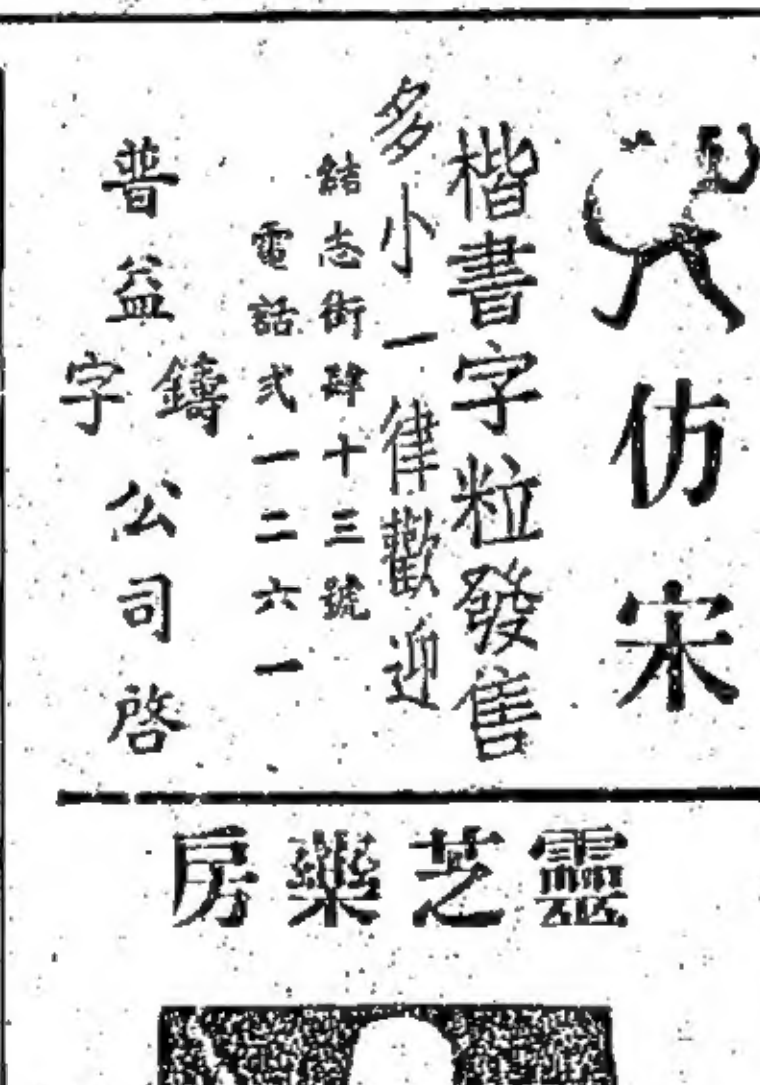 仿宋
楷書字粒發售
多小一律歡迎
結志街肆十三號
電話弍一二六一
普益鑄字公司啓
靈芝藥房